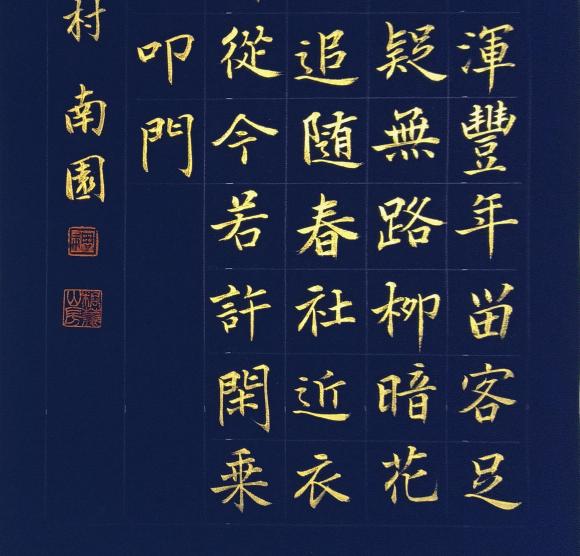 渾豐年留客足
疑無路柳暗花
追随春社近衣
從今若許閑乗
叩門
村 南園